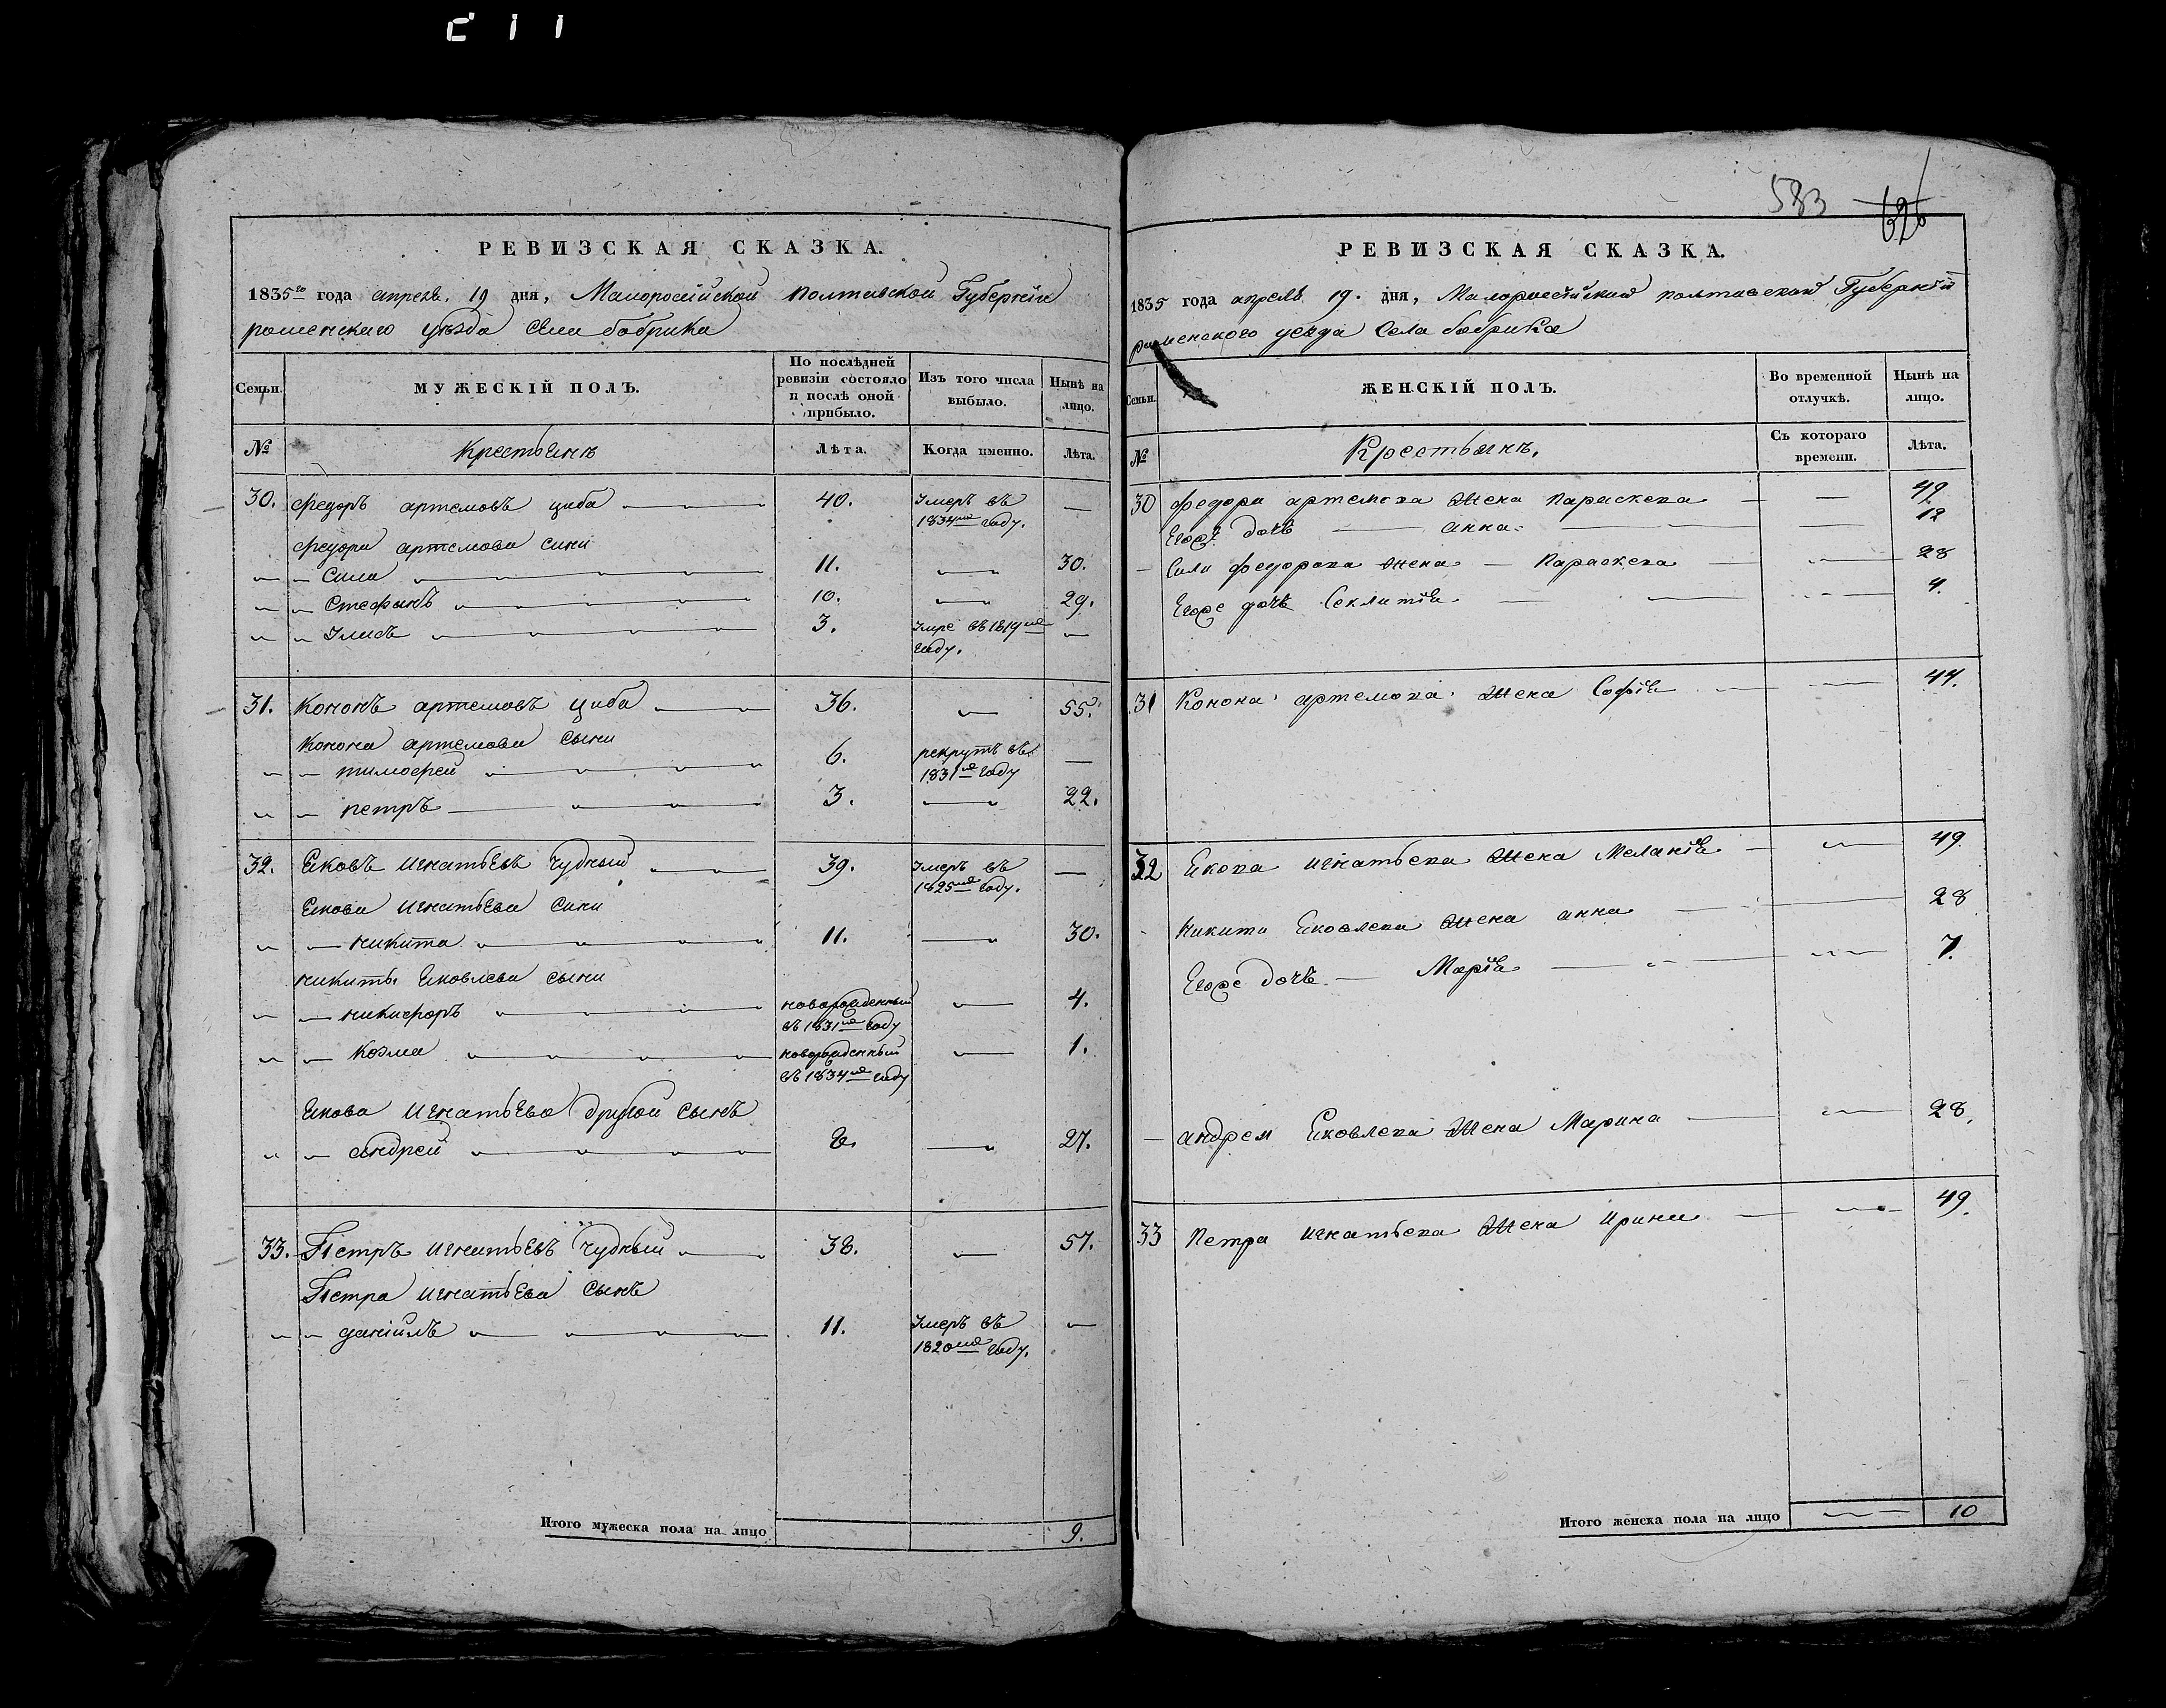 РЕВИЗСКАЯ СКАЗКА.
1835го года апреля 19 дня, Малоросійской полтавской Губерніи
роменскаго уѣзда села бобрика
Семьи.
МУЖЕСКІЙ ПОЛЪ.
По послѣдней ревизіи состояло и послѣ оной прибыло.
Изъ того числа выбыло.
Нынѣ на лицо.
№ Крестьянъ Лѣта. Когда именно. Лѣта.
30. Федоръ артемовъ циба 40. Умеръ въ 1834мъ году. —
Федора артемова сини
Сила 11. — 30.
Стефанъ 10. — 29.
3. Умре въ 1819мъ году. —
31. Кононъ артемовъ циба 36. — 55.
Конона артемова сыни
тимофей 6. рекрутъ въ 1831мъ году —
петръ 3. — 22.
32. Яковъ игнатьевъ Чудный 39. Умеръ въ 1825мъ году. —
Якова игнатьева сини
никита 11. — 30.
никиты Яковлева сыни
никифоръ новорожденный въ 1831мъ году — 4.
Козма новорожденный въ 1834мъ году — 1.
Якова игнатьева другой сынъ
андрей 8. — 27.
33. Петръ игнатьевъ Чудный 38. — 57.
Петра игнатьева сынъ
даніилъ 11. Умеръ въ 1820мъ году. —
Итого мужеска пола на лицо 9.
583 626
РЕВИЗСКАЯ СКАЗКА.
1835 года апреля 19. дня, Малоросійской полтавской Губерніи
роменского уезда Села бобрика
Семьи.
ЖЕНСКІЙ ПОЛЪ.
Во временной отлучкѣ.
Нынѣ на лицо.
№ Крестьянъ. Съ котораго времени. Лѣта.
30 федора артемова жена параскева — 49
Егоже дочь анна — 12
Сили федорова жена — Параскева — 28
Егоже дочь Секлитія — 4.
31 Конона артемова жена Софія — 44.
32 Якова игнатьева жена Меланія — 49
никити Яковлева жена анна — 28
Егоже дочь — Марія — 7.
андрея Яковлева жена Марина — 28.
33 Петра игнатьева жена ирина — 49.
Итого женска пола на лицо — 10